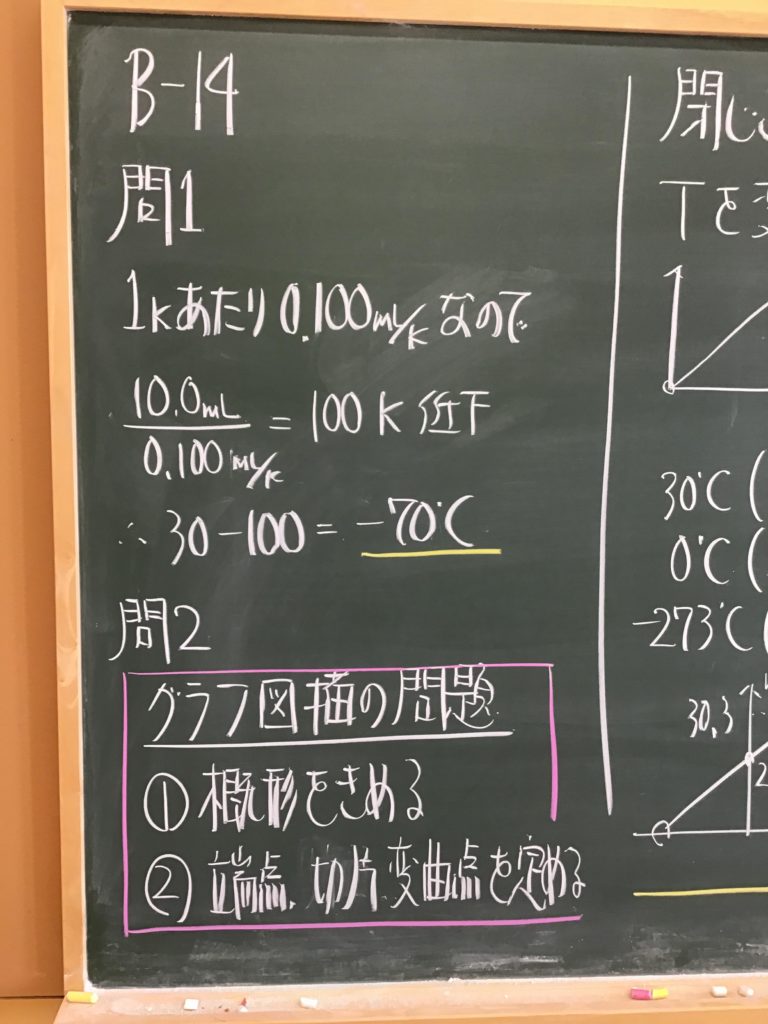 B-14
問1
1Kあたり 0.100mL/K なので
10.0mL
0.100mL/K
= 100K 低下
∴ 30-100 = -70℃
問2
グラフ図描の問題
① 概形をきめる
② 端点、切片、変曲点を定める
閉じ
Tを
30℃(
0℃(
-273℃(
30.3
2